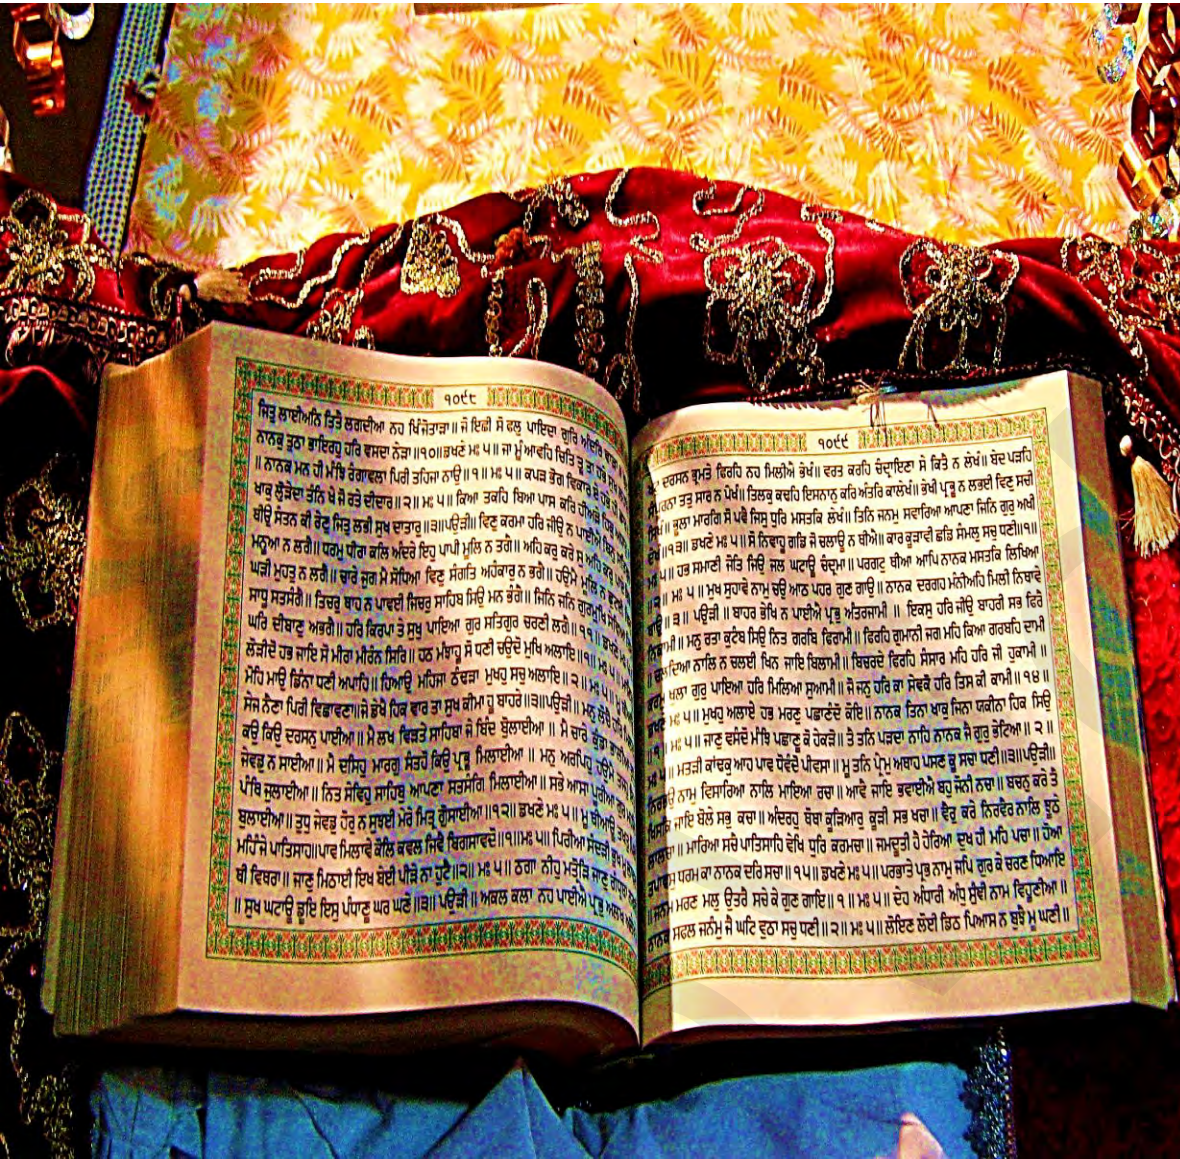 ੧੦੯੮
ਜਿਤੁ ਲਾਈਅਨਿ ਤਿਤੈ ਲਗਦੀਆ ਨਹ ਖਿੰਜੋਤਾੜਾ॥ ਜੋ ਇਛੀ ਸੋ ਫਲੁ ਪਾਇਦਾ ਗੁਰਿ ਅੰਦਰਿ
ਨਾਨਕੁ ਤੁਠਾ ਭਾਇਰਹੁ ਹਰਿ ਵਸਦਾ ਨੇੜਾ॥੧੦॥ਡਖਣੇ ਮਃ ੫॥ ਜਾ ਮੂੰ ਆਵਹਿ ਚਿਤਿ ਤੂ ਤਾ ਹਭੇ
॥ ਨਾਨਕ ਮਨ ਹੀ ਮੰਝਿ ਰੰਗਾਵਲਾ ਪਿਰੀ ਤਹਿਜਾ ਨਾਉ॥੧॥ ਮਃ ੫॥ ਕਪੜ ਭੋਗ ਵਿਕਾਰ ਏ ਹਭੇ
ਖਾਕੁ ਲੋੁੜੇਦਾ ਤੰਨਿ ਖੇ ਜੋ ਰਤੇ ਦੀਦਾਰ॥੨॥ ਮਃ ੫॥ ਕਿਆ ਤਕਹਿ ਬਿਆ ਪਾਸ ਕਰਿ ਹੀਅੜੇ
ਥੀਉ ਸੰਤਨ ਕੀ ਰੇਣੁ ਜਿਤੁ ਲਭੀ ਸੁਖ ਦਾਤਾਰੁ॥੩॥ਪਉੜੀ॥ ਵਿਣੁ ਕਰਮਾ ਹਰਿ ਜੀਉ ਨ ਪਾਈਐ ਬਿਨੁ
ਮਨੂਆ ਨ ਲਗੈ॥ ਧਰਮੁ ਧੀਰਾ ਕਲਿ ਅੰਦਰੇ ਇਹੁ ਪਾਪੀ ਮੂਲਿ ਨ ਤਗੈ॥ ਅਹਿ ਕਰੁ ਕਰੇ ਸੁ ਅਹਿ ਕਰੁ
ਘੜੀ ਮੁਹਤੁ ਨ ਲਗੈ॥ ਚਾਰੇ ਜੁਗ ਮੈ ਸੋਧਿਆ ਵਿਣੁ ਸੰਗਤਿ ਅਹੰਕਾਰੁ ਨ ਭਗੈ॥ ਹਉਮੈ ਮੂਲਿ ਨ ਛੁਟਈ
ਸਾਧੂ ਸਤਸੰਗੈ॥ ਤਿਚਰੁ ਥਾਹ ਨ ਪਾਵਈ ਜਿਚਰੁ ਸਾਹਿਬ ਸਿਉ ਮਨ ਭੰਗੈ॥ ਜਿਨਿ ਜਨਿ ਗੁਰਮੁਖਿ ਸੇਵਿਆ
ਘਰਿ ਦੀਬਾਣੁ ਅਭਗੈ॥ ਹਰਿ ਕਿਰਪਾ ਤੇ ਸੁਖੁ ਪਾਇਆ ਗੁਰ ਸਤਿਗੁਰ ਚਰਣੀ ਲਗੈ॥੧੧॥ ਡਖਣੇ
ਲੋੜੀਦੋ ਹਭ ਜਾਇ ਸੋ ਮੀਰਾ ਮੀਰੰਨ ਸਿਰਿ॥ ਹਠ ਮੰਝਾਹੂ ਸੋ ਧਣੀ ਚਉਦੋ ਮੁਖਿ ਅਲਾਇ॥੧॥ ਮਃ ੫॥
ਮੋਹਿ ਮਾਉ ਡਿੰਨਾ ਧਣੀ ਅਪਾਹਿ॥ ਹਿਆਉ ਮਹਿਜਾ ਠੰਢੜਾ ਮੁਖਹੁ ਸਚੁ ਅਲਾਇ॥੨॥ ਮਃ ੫॥
ਸੇਜ ਨੈਣਾ ਪਿਰੀ ਵਿਛਾਵਣਾ॥ਜੇ ਡੇਖੈ ਹਿਕ ਵਾਰ ਤਾ ਸੁਖ ਕੀਮਾ ਹੂ ਬਾਹਰੇ॥੩॥ਪਉੜੀ॥ ਮਨੁ ਲੋਚੈ ਹਰਿ
ਕਉ ਕਿਉ ਦਰਸਨੁ ਪਾਈਆ॥ ਮੈ ਲਖ ਵਿੜਤੇ ਸਾਹਿਬਾ ਜੇ ਬਿੰਦ ਬੋੁਲਾਈਆ॥ ਮੈ ਚਾਰੇ ਕੁੰਡਾ
ਜੇਵਡੁ ਨ ਸਾਈਆ॥ ਮੈ ਦਸਿਹੁ ਮਾਰਗੁ ਸੰਤਹੋ ਕਿਉ ਪ੍ਰਭੂ ਮਿਲਾਈਆ॥ ਮਨੁ ਅਰਪਿਹੁ ਹਉਮੈ ਤਜਹੁ
ਪੰਥਿ ਜੁਲਾਈਆ॥ ਨਿਤ ਸੇਵਿਹੁ ਸਾਹਿਬੁ ਆਪਣਾ ਸਤਸੰਗਿ ਮਿਲਾਈਆ॥ ਸਭੇ ਆਸਾ ਪੂਰੀਆ ਗੁਰ
ਬੁਲਾਈਆ॥ ਤੁਧੁ ਜੇਵਡੁ ਹੋਰੁ ਨ ਸੁਝਈ ਮੇਰੇ ਮਿਤ੍ਰ ਗੋੁਸਾਈਆ॥੧੨॥ ਡਖਣੇ ਮਃ ੫॥ ਮੂ ਥੀਆਊ
ਮਹਿੰਜੇ ਪਾਤਿਸਾਹ॥ਪਾਵ ਮਿਲਾਵੇ ਕੋਲਿ ਕਵਲ ਜਿਵੈ ਬਿਗਸਾਵਦੋ॥੧॥ਮਃ ੫॥ ਪਿਰੀਆ ਸੰਦੜੀ ਭੁਖ
ਥੀ ਵਿਥਰਾ॥ ਜਾਣੁ ਮਿਠਾਈ ਇਖ ਬੇਈ ਪੀੜੇ ਨਾ ਹੁਟੈ॥੨॥ ਮਃ ੫॥ ਠਗਾ ਨੀਹੁ ਮਤ੍ਰੋੜਿ ਜਾਣੁ
॥ ਸੁਖ ਘਟਾਊ ਡੂਇ ਇਸੁ ਪੰਧਾਣੂ ਘਰ ਘਣੇ॥੩॥ ਪਉੜੀ॥ ਅਕਲ ਕਲਾ ਨਹ ਪਾਈਐ ਪ੍ਰਭੁ
੧੦੯੯
ਦਰਸਨ ਭ੍ਰਮਤੇ ਫਿਰਹਿ ਨਹ ਮਿਲੀਐ ਭੇਖੰ॥ ਵਰਤ ਕਰਹਿ ਚੰਦ੍ਰਾਇਣਾ ਸੇ ਕਿਤੈ ਨ ਲੇਖੰ॥ ਬੇਦ ਪੜਹਿ
ਤਤੁ ਸਾਰ ਨ ਪੇਖੰ॥ ਤਿਲਕੁ ਕਢਹਿ ਇਸਨਾਨੁ ਕਰਿ ਅੰਤਰਿ ਕਾਲੇਖੰ॥ ਭੇਖੀ ਪ੍ਰਭੂ ਨ ਲਭਈ ਵਿਣੁ ਸਚੀ
ਭੂਲਾ ਮਾਰਗਿ ਸੋ ਪਵੈ ਜਿਸੁ ਧੁਰਿ ਮਸਤਕਿ ਲੇਖੰ॥ ਤਿਨਿ ਜਨਮੁ ਸਵਾਰਿਆ ਆਪਣਾ ਜਿਨਿ ਗੁਰੁ ਅਖੀ
॥੧੩॥ ਡਖਣੇ ਮਃ ੫॥ ਸੋ ਨਿਵਾਹੂ ਗਡਿ ਜੋ ਚਲਾਊ ਨ ਥੀਐ॥ ਕਾਰ ਕੂੜਾਵੀ ਛਡਿ ਸੰਮਲੁ ਸਚੁ ਧਣੀ॥੧॥
੫॥ ਹਭ ਸਮਾਣੀ ਜੋਤਿ ਜਿਉ ਜਲ ਘਟਾਊ ਚੰਦ੍ਰਮਾ॥ ਪਰਗਟੁ ਥੀਆ ਆਪਿ ਨਾਨਕ ਮਸਤਕਿ ਲਿਖਿਆ
ਮਃ ੫॥ ਮੁਖ ਸੁਹਾਵੇ ਨਾਮੁ ਚਉ ਆਠ ਪਹਰ ਗੁਣ ਗਾਉ॥ ਨਾਨਕ ਦਰਗਹ ਮੰਨੀਅਹਿ ਮਿਲੀ ਨਿਥਾਵੇ
॥੩॥ ਪਉੜੀ॥ ਬਾਹਰ ਭੇਖਿ ਨ ਪਾਈਐ ਪ੍ਰਭੁ ਅੰਤਰਜਾਮੀ॥ ਇਕਸੁ ਹਰਿ ਜੀਉ ਬਾਹਰੀ ਸਭ ਫਿਰੈ
ਮਨੁ ਰਤਾ ਕੁਟੰਬ ਸਿਉ ਨਿਤ ਗਰਬਿ ਫਿਰਾਮੀ॥ ਫਿਰਹਿ ਗੁਮਾਨੀ ਜਗ ਮਹਿ ਕਿਆ ਗਰਬਹਿ ਦਾਮੀ
ਚਲਦਿਆ ਨਾਲਿ ਨ ਚਲਈ ਖਿਨ ਜਾਇ ਬਿਲਾਮੀ॥ ਬਿਚਰਦੇ ਫਿਰਹਿ ਸੰਸਾਰ ਮਹਿ ਹਰਿ ਜੀ ਹੁਕਾਮੀ॥
ਖੁਲਾ ਗੁਰੁ ਪਾਇਆ ਹਰਿ ਮਿਲਿਆ ਸੁਆਮੀ॥ ਜੋ ਜਨੁ ਹਰਿ ਕਾ ਸੇਵਕੋ ਹਰਿ ਤਿਸ ਕੀ ਕਾਮੀ॥੧੪॥
ਮਃ ੫॥ ਮੁਖਹੁ ਅਲਾਏ ਹਭ ਮਰਣੁ ਪਛਾਣੰਦੋ ਕੋਇ॥ ਨਾਨਕ ਤਿਨਾ ਖਾਕੁ ਜਿਨਾ ਯਕੀਨਾ ਹਿਕ ਸਿਉ
॥੧॥ ਮਃ ੫॥ ਜਾਣੁ ਵਸੰਦੋ ਮੰਝਿ ਪਛਾਣੂ ਕੋ ਹੇਕੜੋ॥ ਤੈ ਤਨਿ ਪੜਦਾ ਨਾਹਿ ਨਾਨਕ ਜੈ ਗੁਰੁ ਭੇਟਿਆ॥੨॥
ਮਃ ੫॥ ਮਤੜੀ ਕਾਂਢਕੁ ਆਹ ਪਾਵ ਧੋਵੰਦੋ ਪੀਵਸਾ॥ ਮੂ ਤਨਿ ਪ੍ਰੇਮੁ ਅਥਾਹ ਪਸਣ ਕੂ ਸਚਾ ਧਣੀ॥੩॥ਪਉੜੀ॥
ਨਿਰਭਉ ਨਾਮੁ ਵਿਸਾਰਿਆ ਨਾਲਿ ਮਾਇਆ ਰਚਾ॥ ਆਵੈ ਜਾਇ ਭਵਾਈਐ ਬਹੁ ਜੋਨੀ ਨਚਾ॥ ਬਚਨੁ ਕਰੇ ਤੈ
ਖਿਸਕਿ ਜਾਇ ਬੋਲੇ ਸਭੁ ਕਚਾ॥ ਅੰਦਰਹੁ ਥੋਥਾ ਕੂੜਿਆਰੁ ਕੂੜੀ ਸਭ ਖਚਾ॥ ਵੈਰੁ ਕਰੇ ਨਿਰਵੈਰ ਨਾਲਿ ਝੂਠੇ
ਲਾਲਚਾ॥ ਮਾਰਿਆ ਸਚੈ ਪਾਤਿਸਾਹਿ ਵੇਖਿ ਧੁਰਿ ਕਰਮਚਾ॥ ਜਮਦੂਤੀ ਹੈ ਹੇਰਿਆ ਦੁਖ ਹੀ ਮਹਿ ਪਚਾ॥ ਹੋਆ
ਤਪਾਵਸੁ ਧਰਮ ਕਾ ਨਾਨਕ ਦਰਿ ਸਚਾ॥੧੫॥ ਡਖਣੇ ਮਃ ੫॥ ਪਰਭਾਤੇ ਪ੍ਰਭ ਨਾਮੁ ਜਪਿ ਗੁਰ ਕੇ ਚਰਣ ਧਿਆਇ
॥ ਜਨਮ ਮਰਣ ਮਲੁ ਉਤਰੈ ਸਚੇ ਕੇ ਗੁਣ ਗਾਇ॥੧॥ ਮਃ ੫॥ ਦੇਹ ਅੰਧਾਰੀ ਅੰਧੁ ਸੁੰਞੀ ਨਾਮ ਵਿਹੂਣੀਆ॥
ਨਾਨਕ ਸਫਲ ਜਨੰਮੁ ਜੈ ਘਟਿ ਵੁਠਾ ਸਚੁ ਧਣੀ॥੨॥ ਮਃ ੫॥ ਲੋਇਣ ਲੋਈ ਡਿਠ ਪਿਆਸ ਨ ਬੁਝੈ ਮੂ ਘਣੀ॥